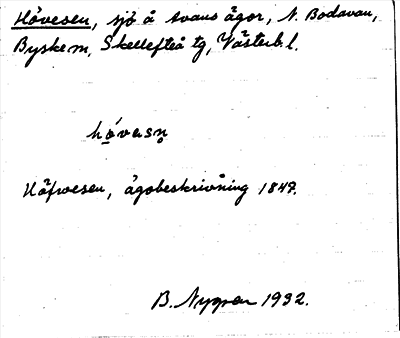 Hövesen, sjö å Avans ägor, N. Bodavan,
Byske sn, Skellefteå tg, Västerb. l.
hǿvəsn̥
Höfwesen, ägobeskrivning 1847.
B. Nygren 1932.